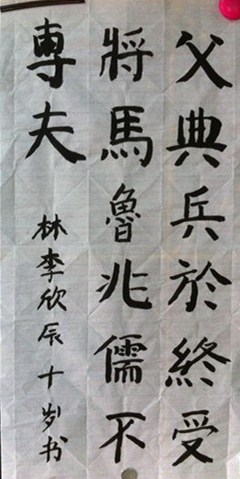 父典兵於終受
將馬魯兆儒不
專夫
林李欣辰十岁书